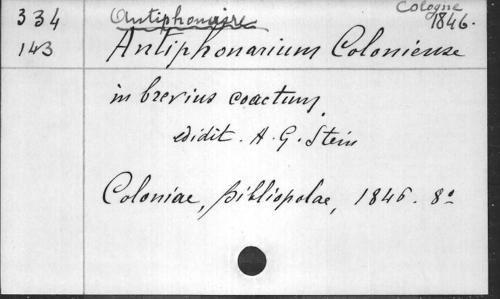 334
143
Antiphonaire
Cologne
1846.
Antiphonarium Coloniense
in brevius coactum,
edidit. A. G. Stein
Coloniae, bibliopolae, 1846. 8º